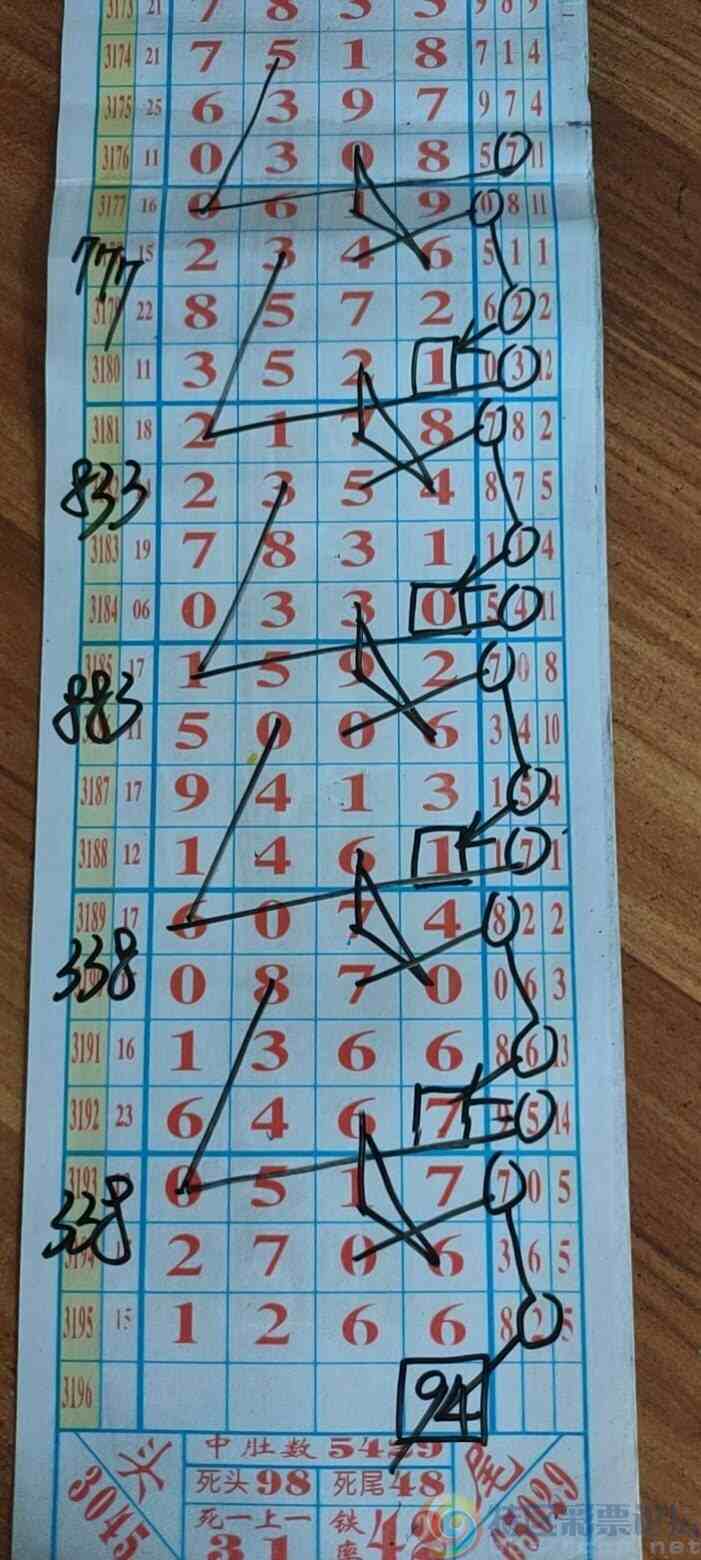 3173 21 7 8 3 3 9 8 9
3174 21 7 5 1 8 7 1 4
3175 25 6 3 9 7 9 7 4
3176 11 0 3 0 8 5 7 11
3177 16 0 6 1 9 0 8 11
777 15 2 3 4 6 5 1 1
3179 22 8 5 7 2 6 2 2
3180 11 3 5 2 1 0 3 12
3181 18 2 1 7 8 7 8 2
833 2 3 5 4 8 7 5
3183 19 7 8 3 1 1 1 4
3184 06 0 3 3 0 5 4 11
3185 17 1 5 9 2 7 0 8
883 11 5 0 0 6 3 4 10
3187 17 9 4 1 3 1 5 4
3188 12 1 4 6 1 1 7 1
3189 17 6 0 7 4 8 2 2
338 0 8 7 0 0 6 3
3191 16 1 3 6 6 8 6 13
3192 23 6 4 6 7 9 5 14
3193 0 5 1 7 7 0 5
338
3194 2 7 0 6 3 6 5
3195 15 1 2 6 6 8 2 5
3196 94
中肚数 5429
头 3045 死头 98 死尾 48 尾
死一上一 31 铁率 42